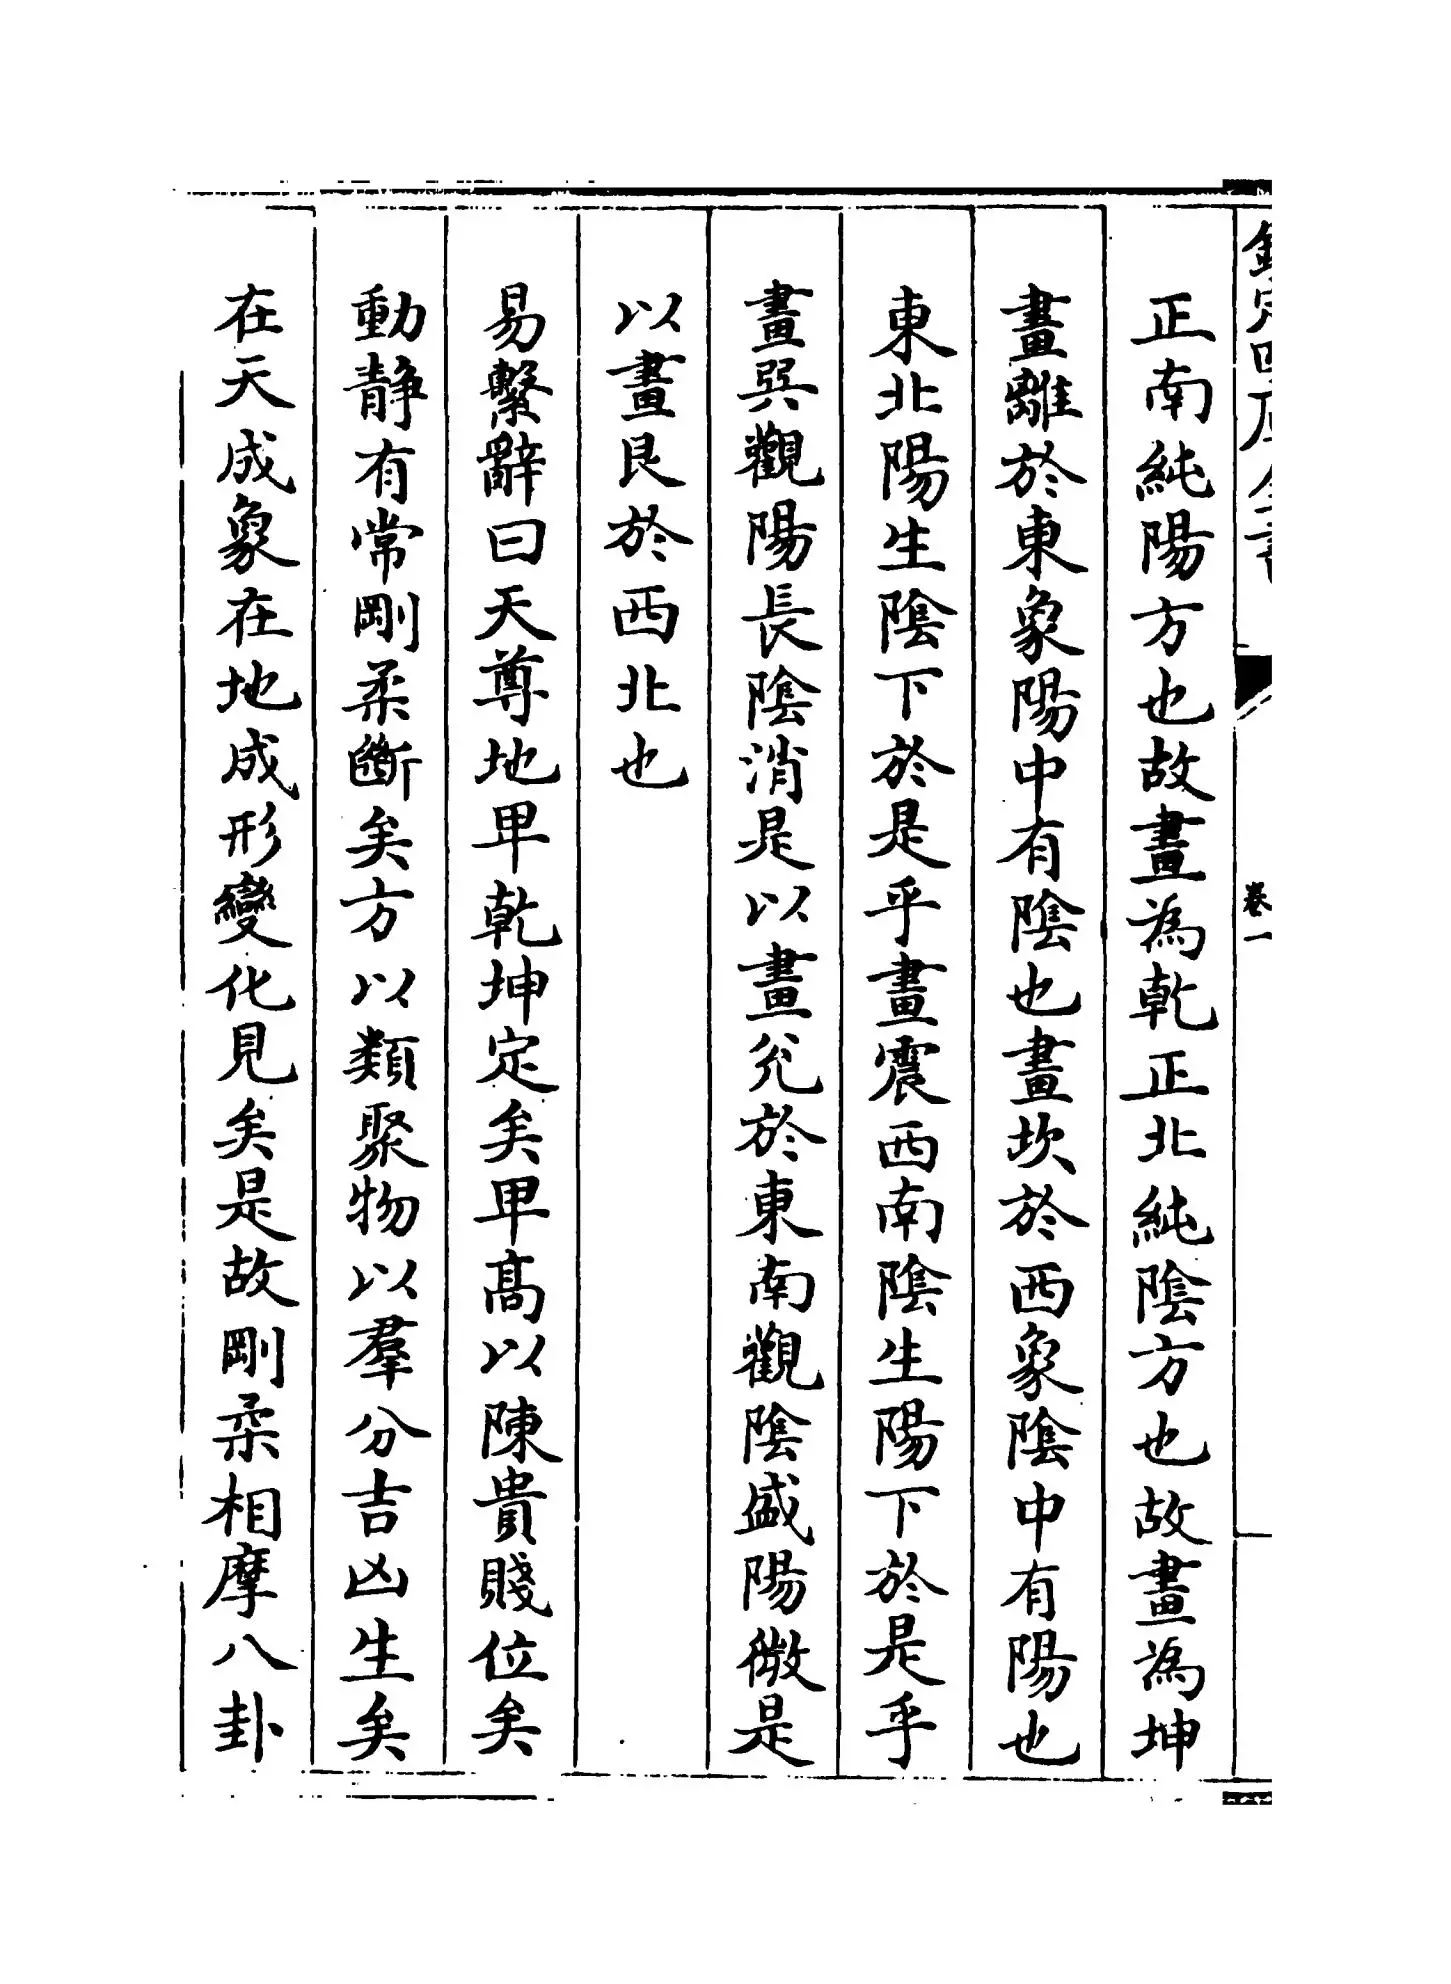 欽定四庫全書
卷一
正南純陽方也故畫為乾正北純陰方也故畫為坤
畫離於東象陽中有陰也畫坎於西象陰中有陽也
東北陽生陰下於是乎畫震西南陰生陽下於是乎
畫巽觀陽長陰消是以畫兊於東南觀陰盛陽微是
以畫艮於西北也
易繫辭曰天尊地卑乾坤定矣卑髙以陳貴賤位矣
動静有常剛柔斷矣方以類聚物以羣分吉凶生矣
在天成象在地成形變化見矣是故剛柔相摩八卦